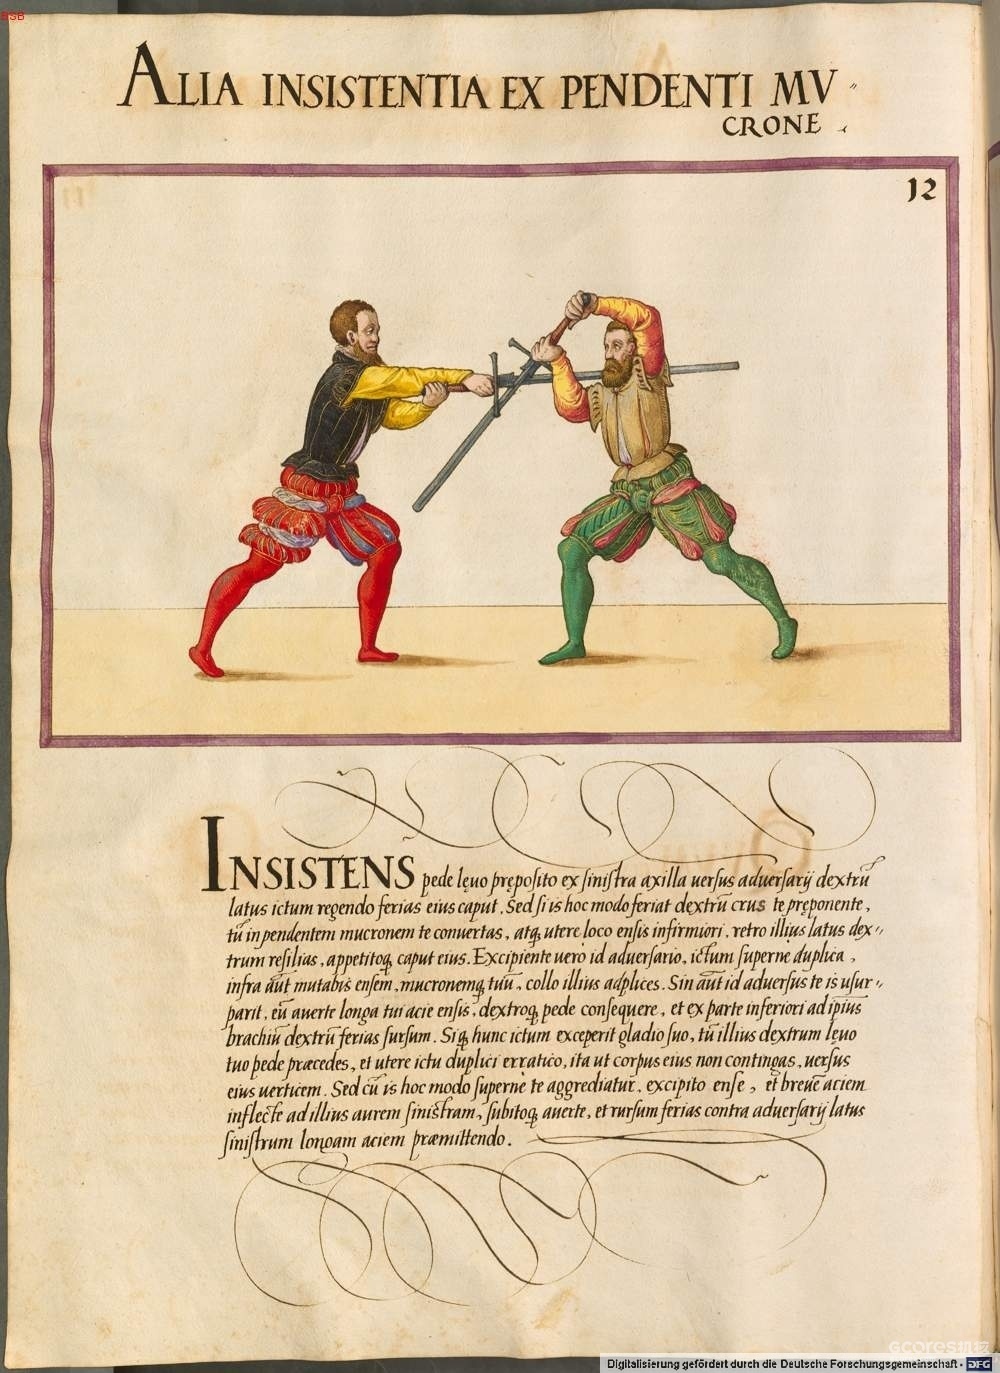 BSB
ALIA INSISTENTIA EX PENDENTI MV〃
CRONE
12
INSISTENS pede lęuo pręposito ex sinistra axilla uersus aduersarÿ dextrū
latus ictum regendo ferias eius caput. Sed si is hoc modo feriat dextrū crus te pręponente,
tū in pendentem mucronem te conuertas, atq; utere loco ensis infirmiori, retro illius latus dex〃
trum resilias, appetitoq; caput eius. Excipiente uero id aduersario, ictum superne duplica,
infra aūt mutabis ensem, mucronemq; tuū, collo illius adplices. Sin aūt id aduersus te is usur〃
parit, eū auerte longa tui acie ensis, dextroq; pede consequere, et ex parte inferiori ad ipius
brachiū dextrū ferias sursum. Siq; hunc ictum exceperit gladio suo, tū illius dextrum lęuo
tuo pede præcedes, et utere ictu duplici erratico, ita ut corpus eius non contingas, uersus
eius uerticem. Sed cū is hoc modo supernè te aggrediatur, excipito ense, et breue aciem
inflecte ad illius aurem sinistram, subitoq; auerte, et rursum ferias contra aduersarÿ latus
sinistrum longam aciem præmittendo.
Digitalisierung gefördert durch die Deutsche Forschungsgemeinschaft - DFG